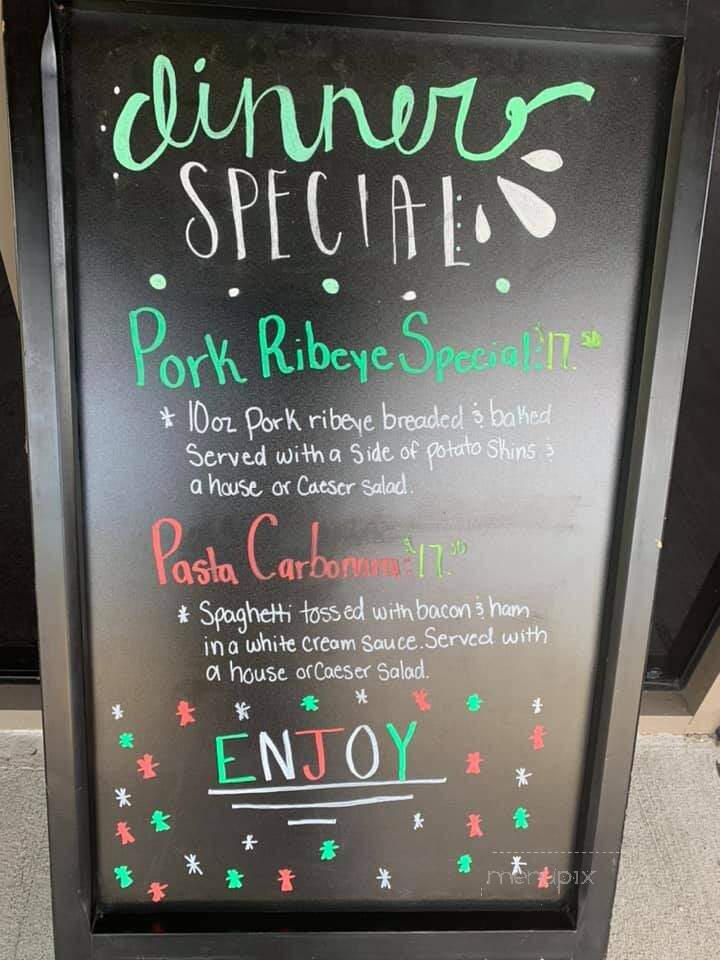 dinner
SPECIAL
Pork Ribeye Special: $17.50
* 10oz pork ribeye breaded & baked
Served with a side of potato skins &
a house or Caeser salad.
Pasta Carbonara: $17.50
* Spaghetti tossed with bacon & ham
in a white cream sauce. Served with
a house or Caeser Salad.
ENJOY
menupix